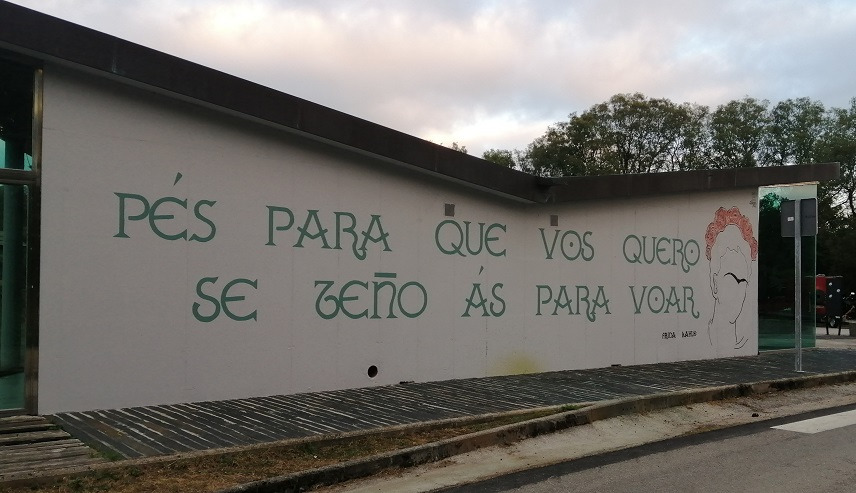 PÉS PARA QUE VOS QUERO
SE TEÑO ÁS PARA VOAR
FRIDA KAHLO